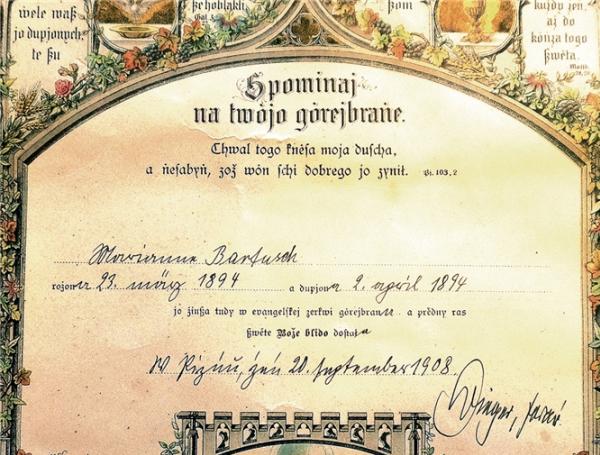 wele waß
jo dupjonych,
te ßu
ße hobläkli
Gal. 3
ßom
kuždy źeń,
aj do
końza togo
ßwěta.
Matth.
Spominaj
na twójo górejbrańe.
Chwal togo kněsa moja duscha,
a ńesabyń, zož wón schi dobrego jo zynił. Ps. 103, 2
Marianne Bartusch
rožona 23. märz 1894 a dupjona 2. april 1894
jo źinßa tudy w evangelskej zerkwi górejbrana a prědny ras
ßwěte Bože blido dostała
W Pizńu, źeń 20. september 1908.